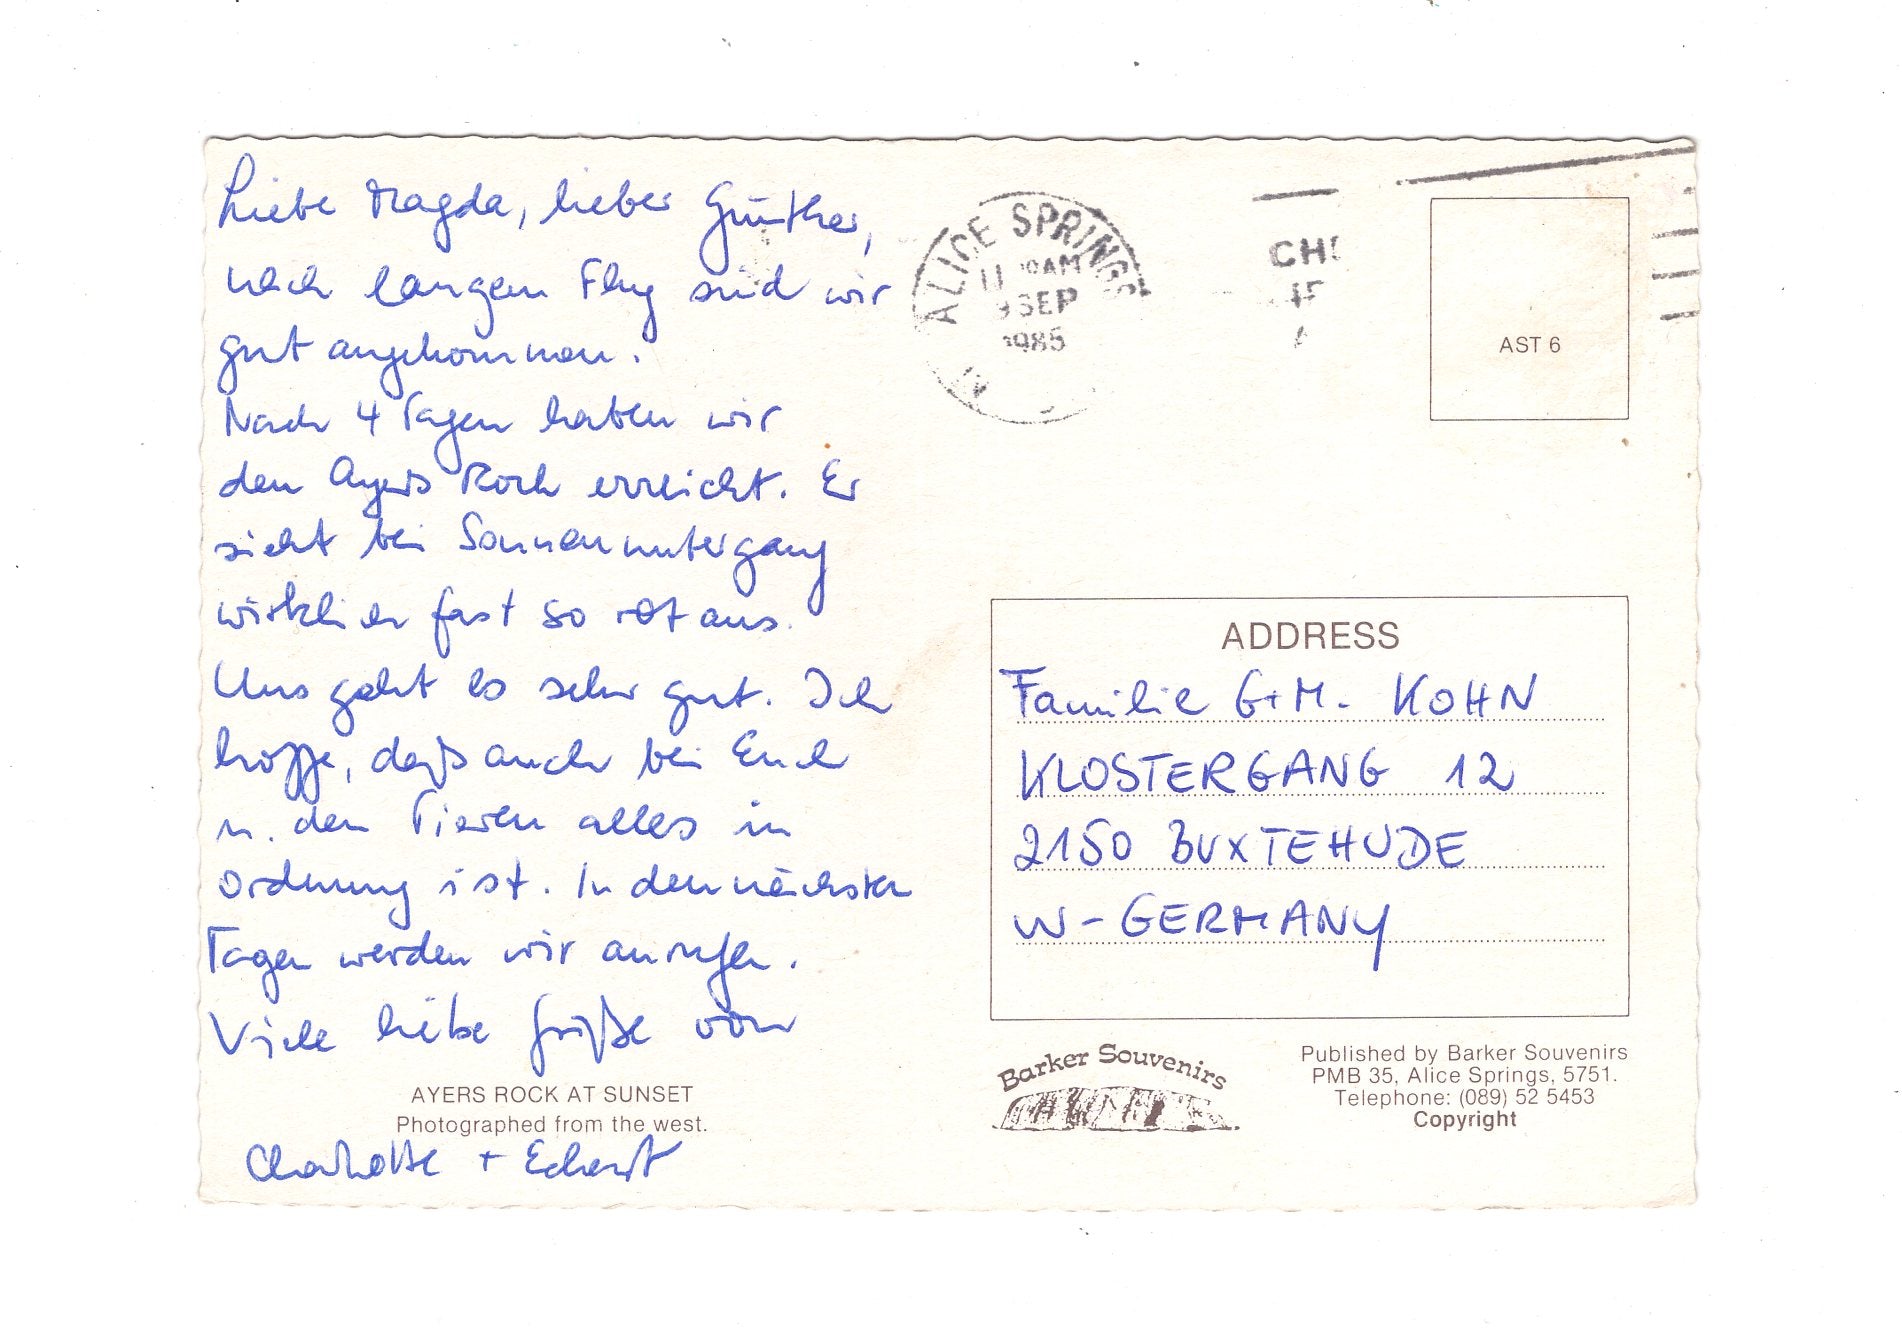 Liebe Magda, lieber Günther,
nach langem Flug sind wir
gut angekommen.
Nach 4 Tagen haben wir
den Ayers Rock erreicht. Er
sieht bei Sonnenuntergang
wirklich fast so rot aus.
Uns geht es sehr gut. Ich
hoffe, daß auch bei Euch
u. den Tieren alles in
Ordnung ist. In den nächsten
Tagen werden wir anrufen.
Viele liebe Grüße von
AYERS ROCK AT SUNSET
Photographed from the west.
Charlotte + Eckart
ALICE SPRINGS
11 00AM
9 SEP
1985
AST 6
ADDRESS
Familie G+M. KOHN
KLOSTERGANG 12
2150 BUXTEHUDE
W-GERMANY
Barker Souvenirs
Published by Barker Souvenirs
PMB 35, Alice Springs, 5751.
Telephone: (089) 52 5453
Copyright